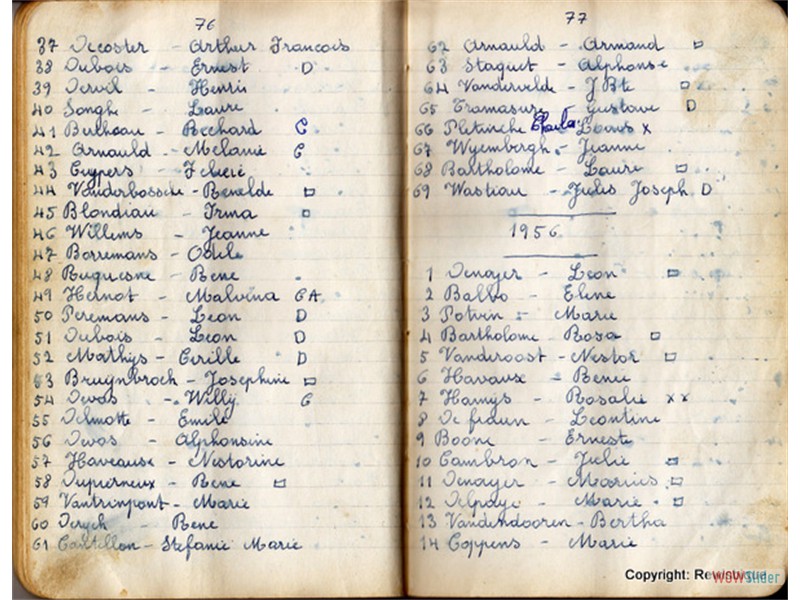 76
37 Decoster - Arthur Francois
38 Dubois - Ernest D
39 Dervil - Henri
40 Songhe - Laure
41 Bulteau - Bechard C
42 Arnauld - Melanie C
43 Cuypers -
44 Vanderbossche - Renelde □
45 Blondiau - Irma □
46 Willems - Jeanne
47 Borremans - Odile
48 Buquesne - Rene
49 Hernot - Malvina CA
50 Peremans - Leon D
51 Dubois - Leon D
52 Mathys - Cirille D
53 Bruynbroch - Josephine □
54 Devos - Willy C
55 Delmotte - Emile
56 Devos - Alphonsine
57 Haveause - Nestorine
58 Dupierreux - Rene □
59 Vantrinpont - Marie
60 Deryck - Rene
61 Cantillon - Stefanie Marie
77
62 Arnauld - Armand □
63 Staquet - Alphonse
64 Vandervelde - J Bte □
65 Tramasure - Gustave D
66 Pletincke - Louis x
67 Wyembergh - Jeanne
68 Bartholome - Laure □
69 Wastiau - Jules Joseph D
1956
1 Denayer - Leon □
2 Balbo - Elene
3 Potvin - Marie
4 Bartholome - Rosa □
5 Vanderoost - Nestor □
6 Havaux - Rene
7 Hamys - Rosalie xx
8 De - Leontine
9 Boone - Erneste
10 Cambron - Julie □
11 Denayer - Marius □
12 Delpaye - Marie □
13 Vandendooren - Bertha
14 Coppens - Marie
Copyright:
WOWSlider